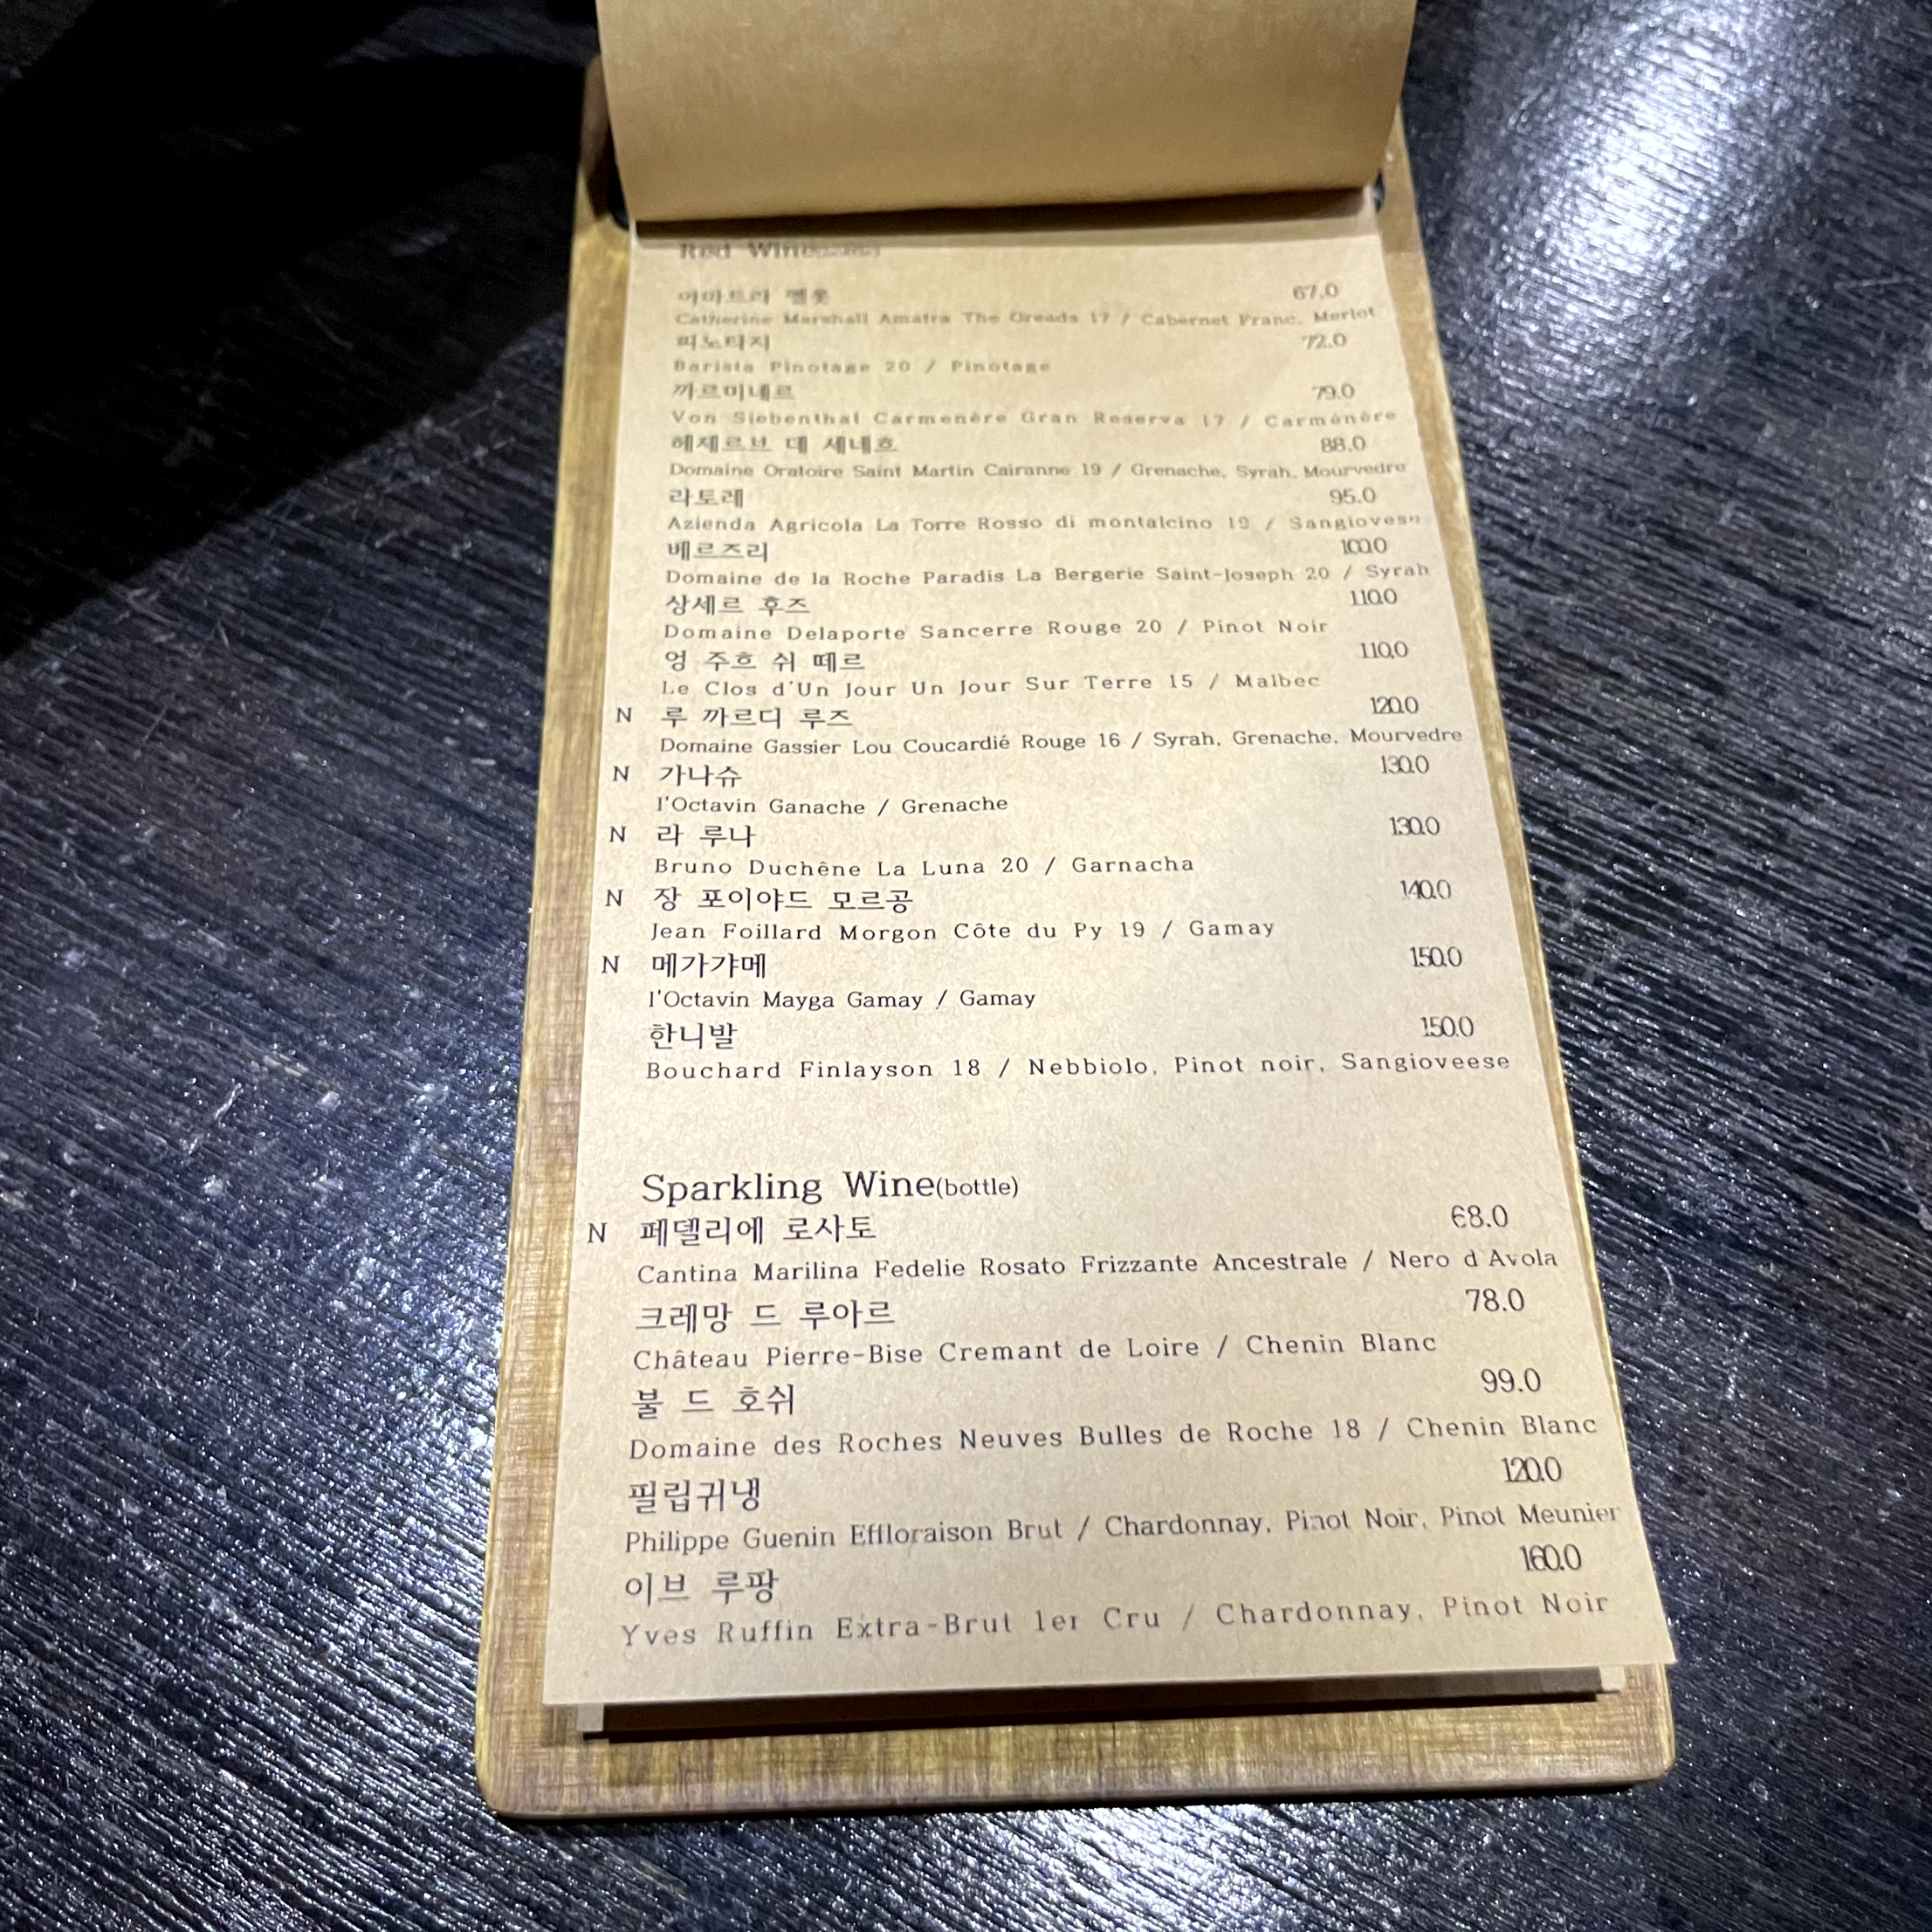 Red Wine(bottle)
아마트라 멜롯 67.0
Catherine Marshall Amatra The Oreads 17 / Cabernet Franc, Merlot
피노타지 72.0
Barista Pinotage 20 / Pinotage
까르미네르 79.0
Von Siebenthal Carmenère Gran Reserva 17 / Carménère
헤제르브 데 세네흐 88.0
Domaine Oratoire Saint Martin Cairanne 19 / Grenache, Syrah, Mourvedre
라토레 95.0
Azienda Agricola La Torre Rosso di montalcino 19 / Sangiovese
베르즈리 100.0
Domaine de la Roche Paradis La Bergerie Saint-Joseph 20 / Syrah
상세르 후즈 110.0
Domaine Delaporte Sancerre Rouge 20 / Pinot Noir
엉 주흐 쉬 떼르 110.0
Le Clos d'Un Jour Un Jour Sur Terre 15 / Malbec
N 루 까르디 루즈 120.0
Domaine Gassier Lou Coucardié Rouge 16 / Syrah, Grenache, Mourvedre
N 가나슈 130.0
l'Octavin Ganache / Grenache
N 라 루나 130.0
Bruno Duchêne La Luna 20 / Garnacha
N 장 포이야드 모르공 140.0
Jean Foillard Morgon Côte du Py 19 / Gamay
N 메가갸메 150.0
l'Octavin Mayga Gamay / Gamay
한니발 150.0
Bouchard Finlayson 18 / Nebbiolo, Pinot noir, Sangioveese
Sparkling Wine(bottle)
N 페델리에 로사토 68.0
Cantina Marilina Fedelie Rosato Frizzante Ancestrale / Nero d Avola
크레망 드 루아르 78.0
Château Pierre-Bise Cremant de Loire / Chenin Blanc
불 드 호쉬 99.0
Domaine des Roches Neuves Bulles de Roche 18 / Chenin Blanc
필립귀냉 120.0
Philippe Guenin Effloraison Brut / Chardonnay, Pinot Noir, Pinot Meunier
이브 루팡 160.0
Yves Ruffin Extra-Brut 1er Cru / Chardonnay, Pinot Noir